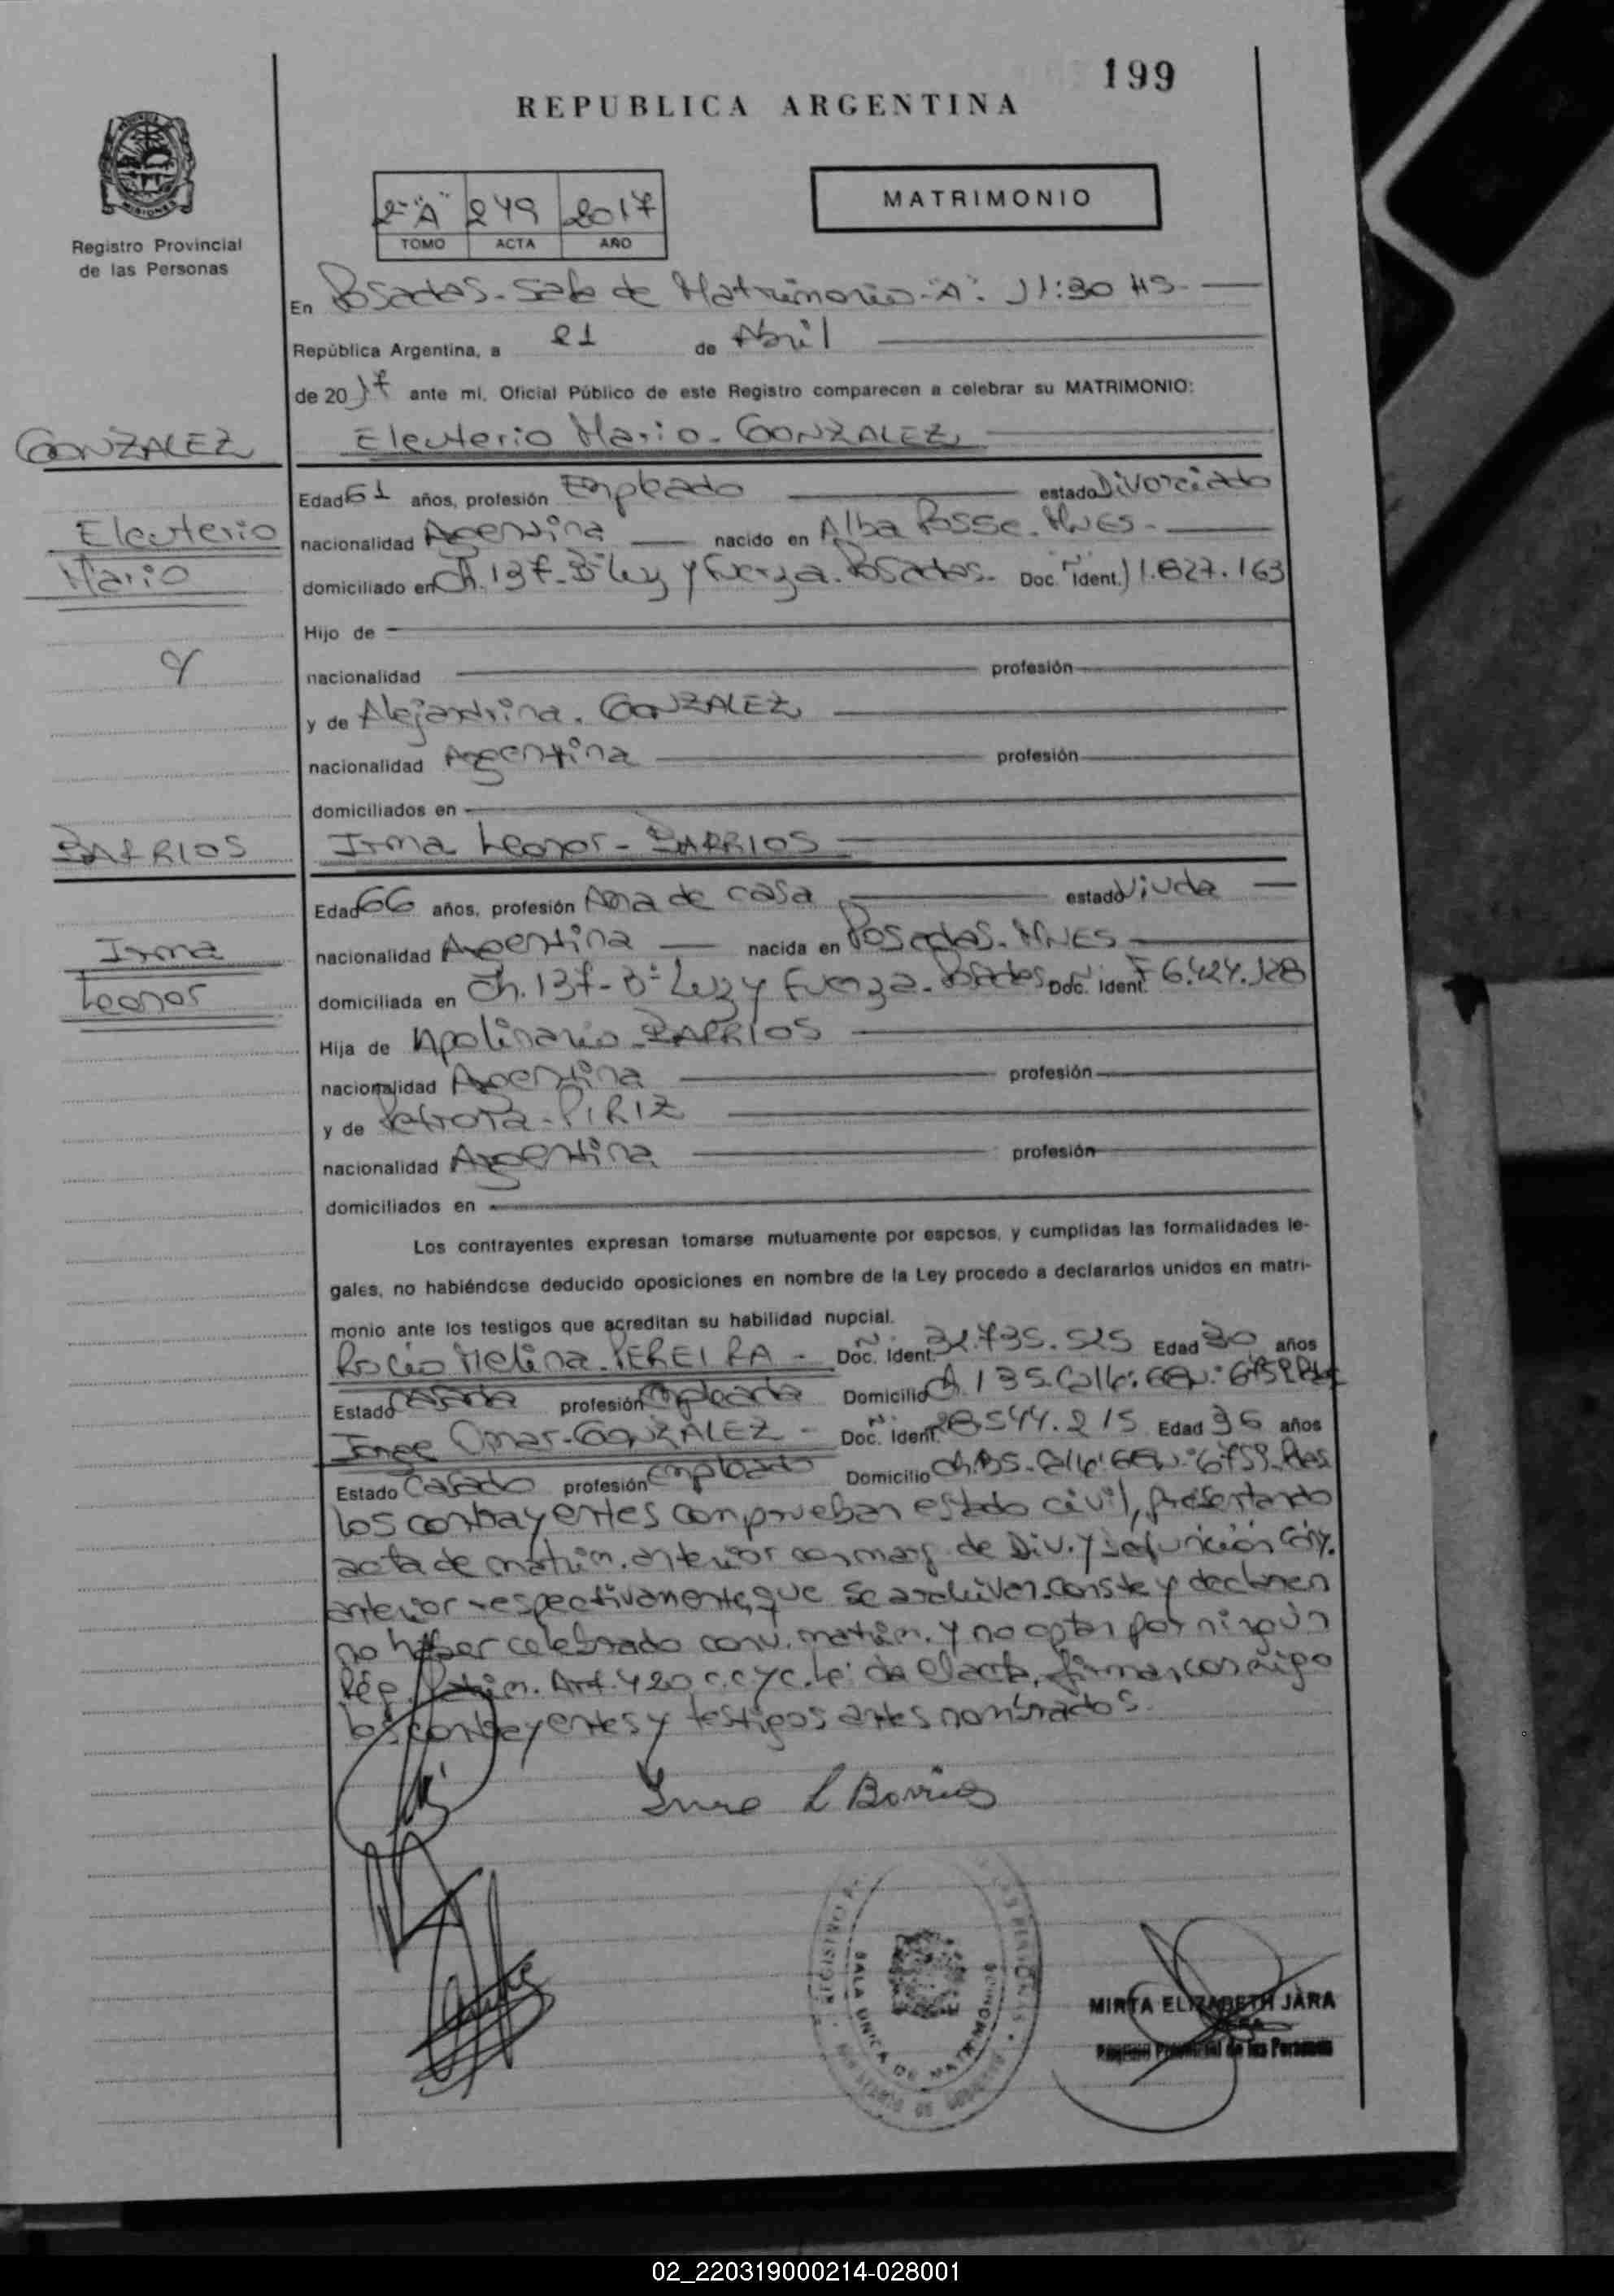 199
REPUBLICA ARGENTINA
MISIONES
Registro Provincial
de las Personas
2º "A" 249 2017
TOMO ACTA AÑO
MATRIMONIO
En Posadas. Sala de Matrimonio "A". 11:30 HS.
República Argentina, a 21 de Abril
de 2017 ante mi, Oficial Público de este Registro comparecen a celebrar su MATRIMONIO:
GONZALEZ
Eleuterio Mario. GONZALEZ
Edad 61 años, profesión Empleado estado Divorciado
Eleuterio
Mario
nacionalidad Argentina nacido en Alba Posse. MNES.
domiciliado en Ch. 137. Bº Luz y Fuerza. Posadas. Doc. Ident. 11.827.163
Hijo de
y
nacionalidad profesión
y de Alejandrina. GONZALEZ
nacionalidad Argentina profesión
domiciliados en
BARRIOS
Irma Leonor - BARRIOS
Edad 66 años, profesión Ama de casa estado Viuda
Irma
Leonor
nacionalidad Argentina nacida en Posadas. MNES
domiciliada en Ch. 137 - Bº Luz y Fuerza. Posadas Doc. Ident. F 6.424.128
Hija de Apolinario BARRIOS
nacionalidad Argentina profesión
y de Petrona - PIRIZ
nacionalidad Argentina profesión
domiciliados en
Los contrayentes expresan tomarse mutuamente por esposos, y cumplidas las formalidades le-
gales, no habiéndose deducido oposiciones en nombre de la Ley procedo a declararlos unidos en matri-
monio ante los testigos que acreditan su habilidad nupcial.
Rocío Melina. PEREIRA - Doc. Ident. 32.735.525 Edad 30 años
Estado Casada profesión Empleada Domicilio Ch. 135. Calle
Jorge Omar - GONZALEZ - Doc. Ident. 28.544.215 Edad 36 años
Estado Casado profesión Empleado Domicilio Ch. 135. Calle
los contrayentes comprueban estado civil, presentando
acta de matrim. anterior con marg. de Div. y defunción Cóny.
anterior respectivamente, que se archivan. conste y declaren
no haber celebrado conv. matrim. y no optan por ningún
Rég. Patrim. Art. 420 c.c. y c. Leída el acta, firman conmigo
los contrayentes y testigos antes nombrados.
Irma L Barrios
SALA UNICA DE MATRIMONIOS
MIRTA ELIZABETH JARA
Registro Provincial de las Personas
02_220319000214-028001